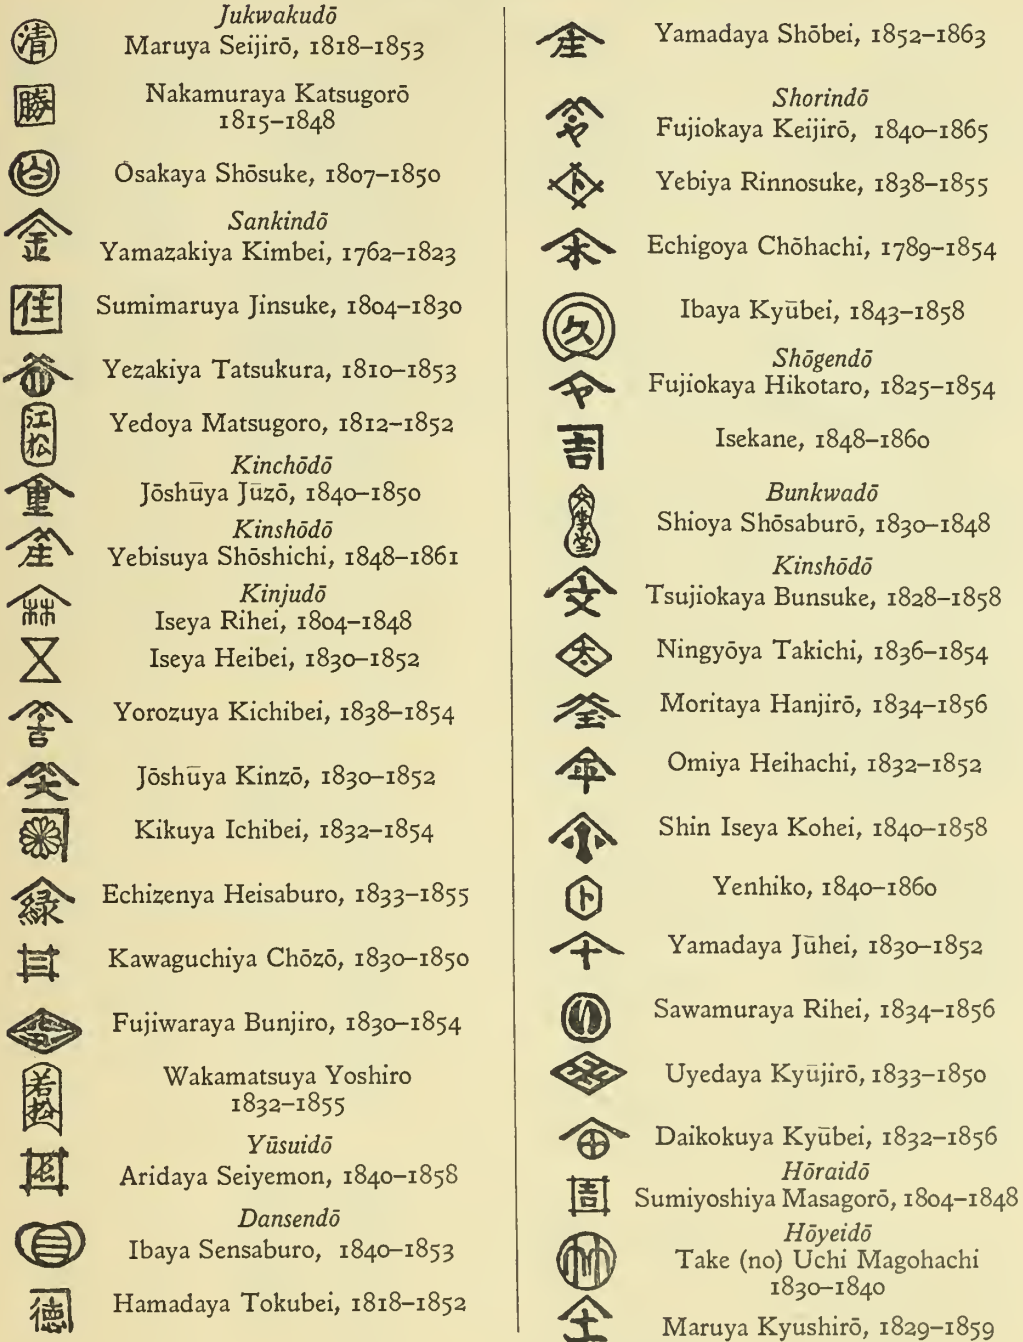 清
Jukwakudō
Maruya Seijirō, 1818–1853
勝
Nakamuraya Katsugorō
1815–1848
Ōsakaya Shōsuke, 1807–1850
金
Sankindō
Yamazakiya Kimbei, 1762–1823
住
Sumimaruya Jinsuke, 1804–1830
Yezakiya Tatsukura, 1810–1853
江松
Yedoya Matsugoro, 1812–1852
重
Kinchōdō
Jōshūya Jūzō, 1840–1850
Kinshōdō
Yebisuya Shōshichi, 1848–1861
林
Kinjudō
Iseya Rihei, 1804–1848
Iseya Heibei, 1830–1852
吉
Yorozuya Kichibei, 1838–1854
Jōshūya Kinzō, 1830–1852
Kikuya Ichibei, 1832–1854
緑
Echizenya Heisaburo, 1833–1855
Kawaguchiya Chōzō, 1830–1850
Fujiwaraya Bunjiro, 1830–1854
若松
Wakamatsuya Yoshiro
1832–1855
Yūsuidō
Aridaya Seiyemon, 1840–1858
Dansendō
Ibaya Sensaburo, 1840–1853
徳
Hamadaya Tokubei, 1818–1852
庄
Yamadaya Shōbei, 1852–1863
Shorindō
Fujiokaya Keijirō, 1840–1865
ト
Yebiya Rinnosuke, 1838–1855
本
Echigoya Chōhachi, 1789–1854
久
Ibaya Kyūbei, 1843–1858
ヤ
Shōgendō
Fujiokaya Hikotaro, 1825–1854
吉
Isekane, 1848–1860
Bunkwadō
Shioya Shōsaburō, 1830–1848
文
Kinshōdō
Tsujiokaya Bunsuke, 1828–1858
太
Ningyōya Takichi, 1836–1854
Moritaya Hanjirō, 1834–1856
平
Omiya Heihachi, 1832–1852
小
Shin Iseya Kohei, 1840–1858
ト
Yenhiko, 1840–1860
十
Yamadaya Jūhei, 1830–1852
Sawamuraya Rihei, 1834–1856
Uyedaya Kyūjirō, 1833–1850
Daikokuya Kyūbei, 1832–1856
吉
Hōraidō
Sumiyoshiya Masagorō, 1804–1848
Hōyeidō
Take (no) Uchi Magohachi
1830–1840
Maruya Kyushirō, 1829–1859